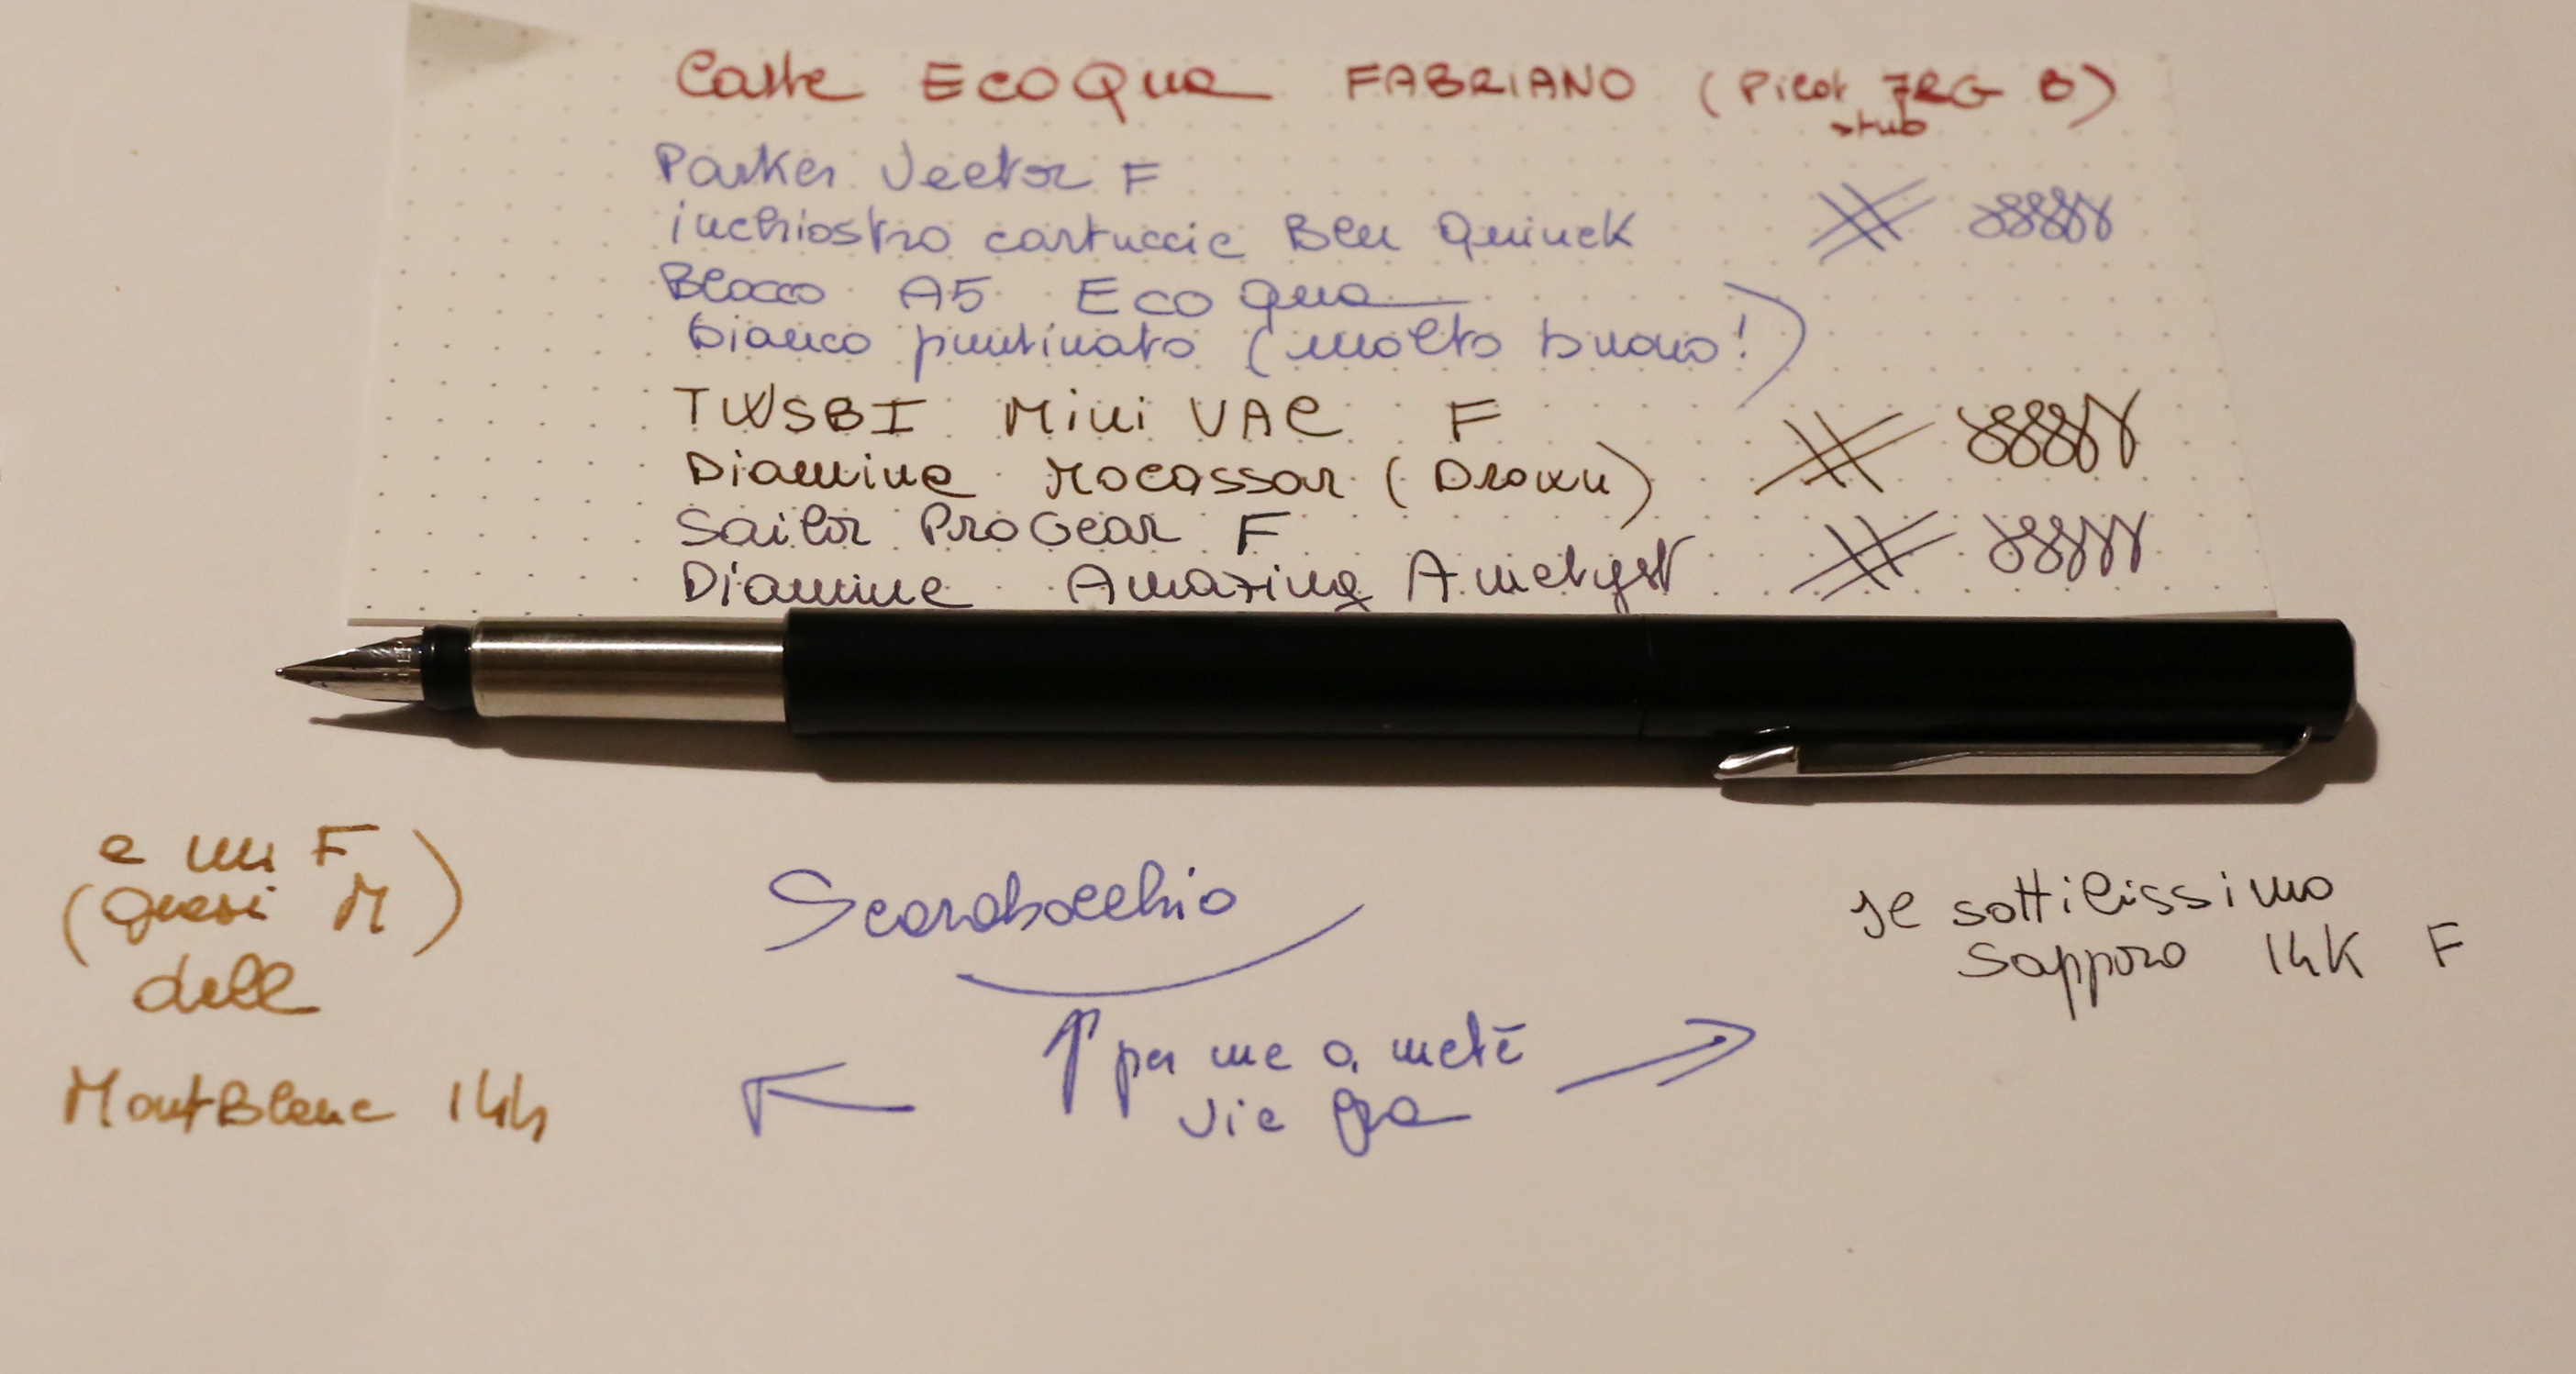 Carta ECOQua FABRIANO (Pilot 78G B)
stub
Parker Vector F
inchiostro cartuccie Blu Quinck
Blocco A5 EcoQua
bianco puntinato (molto buono!)
TWSBI Mini VAC F
Diamine Macassar (Brown)
Sailor ProGear F
Diamine Amazing Ametyst
e un F
(quasi M)
dell
MontBlanc 144
Scarabocchio
per me a metà
via fra
il sottilissimo
Sapporo 14K F